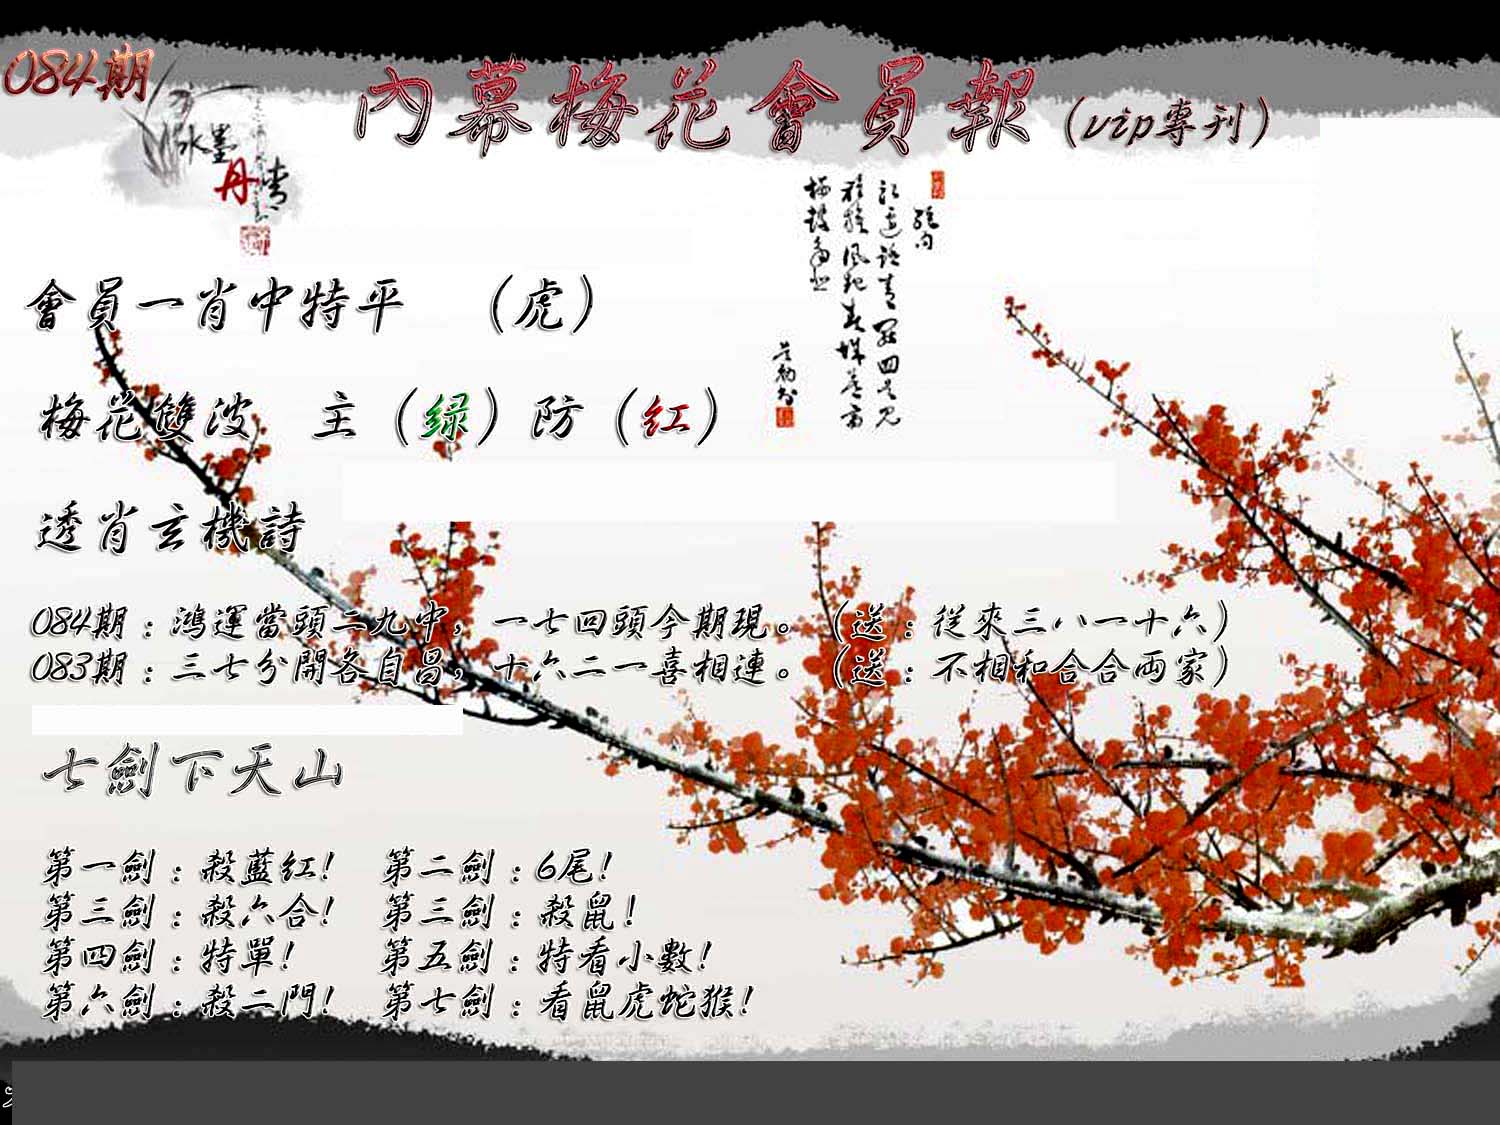 084期
內幕梅花會員報（vip專刊）
水墨
丹青
會員一肖中特平　（虎）
梅花雙波　主（綠）防（紅）
透肖玄機詩
084期：鴻運當頭二九中，一七回頭今期現。（送：從來三八一十六）
083期：三七分開各自昌，十六二一喜相連。（送：不相和合合兩家）
七劍下天山
第一劍：殺藍紅！　第二劍：6尾！
第三劍：殺六合！　第三劍：殺鼠！
第四劍：特單！　第五劍：特看小數！
第六劍：殺二門！　第七劍：看鼠虎蛇猴！